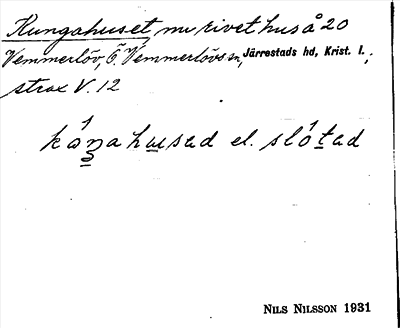 Kungahuset nu rivet hus å 20
Vemmerlöv, Ö. Vemmerlövs sn, Järrestads hd, Krist. l.,
strax V. 12
kåŋahused el. slótad
NILS NILSSON 1931